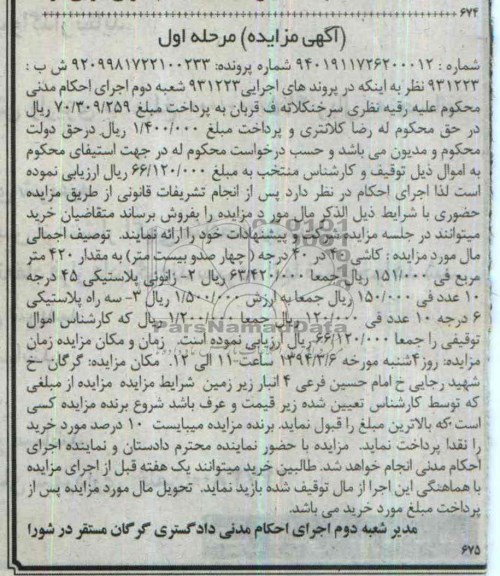 ۶۷۴
(آگهی مزایده) مرحله اول
شماره : ۹۴۰۱۹۱۱۷۲۶۲۰۰۰۱۲ شماره پرونده: ۹۲۰۹۹۸۱۷۲۲۱۰۰۲۳۳ ش ب :
۹۳۱۲۲۳ نظر به اینکه در پروند های اجرایی۹۳۱۲۲۳ شعبه دوم اجرای احکام مدنی
محکوم علیه رقیه نظری سرخنکلاته ف قربان به پرداخت مبلغ ۷۰/۳۰۹/۲۵۹ ریال
در حق محکوم له رضا کلانتری و پرداخت مبلغ ۱/۴۰۰/۰۰۰ ریال درحق دولت
محکوم و مدیون می باشد و حسب درخواست محکوم له در جهت استیفای محکوم
به اموال ذیل توقیف و کارشناس منتخب به مبلغ ۶۶/۱۲۰/۰۰۰ ریال ارزیابی نموده
است لذا اجرای احکام در نظر دارد پس از انجام تشریفات قانونی از طریق مزایده
حضوری با شرایط ذیل الذکر مال مورد مزایده را بفروش برساند متقاضیان خرید
میتوانند در جلسه مزایده شرکت و پیشنهادات خود را ارائه نمایند. توصیف اجمالی
مال مورد مزایده : کاشی ۴۰ در ۴۰ درجه ( چهار صدو بیست متر) به مقدار ۴۲۰ متر
مربع فی ۱۵۱/۰۰۰ ریال جمعا ۶۳/۴۲۰/۰۰۰ ریال ۲- زانوئی پلاستیکی ۴۵ درجه
۱۰ عدد فی ۱۵۰/۰۰۰ ریال جمعا به ارزش ۱/۵۰۰/۰۰۰ ریال ۳- سه راه پلاستیکی
۶ درجه ۱۰ عدد فی ۱۲۰/۰۰۰ ریال جمعا ۱/۲۰۰/۰۰۰ ریال که کارشناس اموال
توقیفی را جمعا ۶۶/۱۲۰/۰۰۰ ریال ارزیابی نموده است. زمان و مکان مزایده زمان
مزایده: روز ۴شنبه مورخه ۱۳۹۴/۳/۶ ساعت ۱۱ الی ۱۲. مکان مزایده: گرگان -خ
شهید رجایی خ امام حسین فرعی ۴ انبار زیر زمین شرایط مزایده مزایده از مبلغی
که توسط کارشناس تعیین شده زیر قیمت و عرف باشد شروع برنده مزایده کسی
است که بالاترین مبلغ را قبول نماید. برنده مزایده میبایست ۱۰ درصد مورد خرید
را نقدا پرداخت نماید. مزایده با حضور نماینده محترم دادستان و نماینده اجرای
احکام مدنی انجام خواهد شد. طالبین خرید میتوانند یک هفته قبل از اجرای مزایده
با هماهنگی این اجرا از مال توقیف شده بازید نماید. تحویل مال مورد مزایده پس از
پرداخت مبلغ مورد خرید می باشد.
مدیر شعبه دوم اجرای احکام مدنی دادگستری گرگان مستقر در شورا
۶۷۵
ParsNamadData